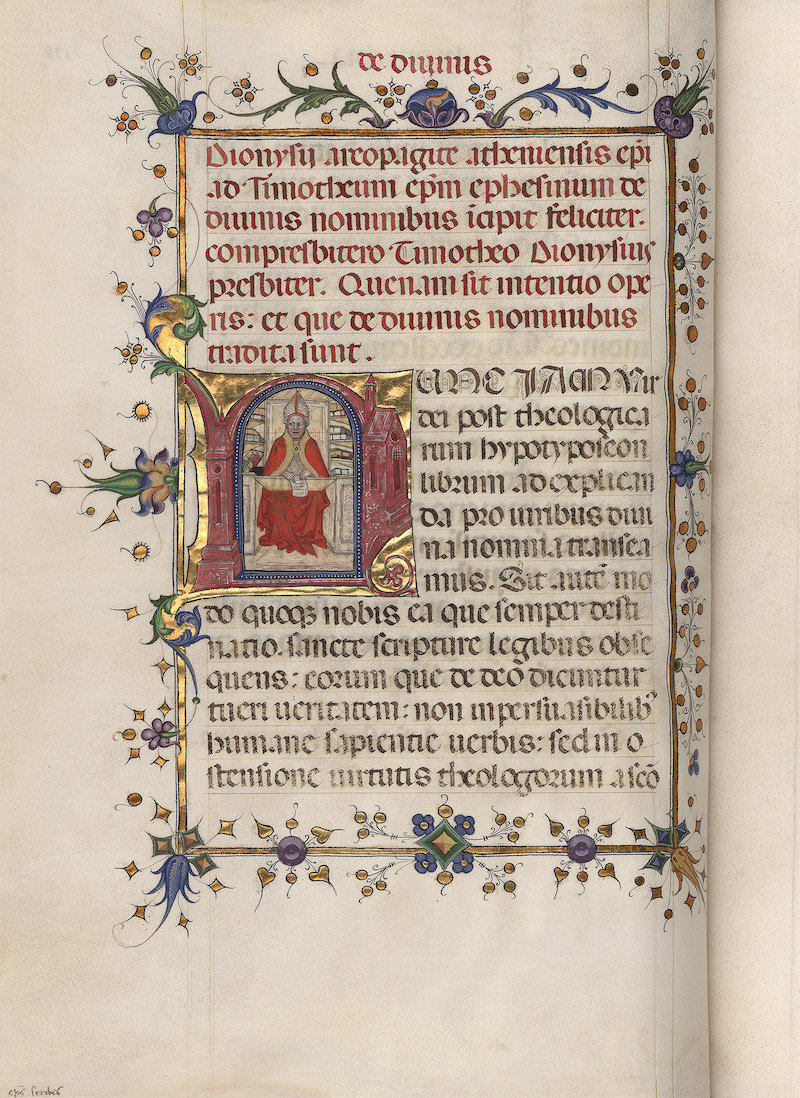 de diuinis
Dionysii areopagite atheniensis ep̄i
ad Timotheum ep̄m ephesinum de
diuinis nominibus īcipit feliciter.
compresbitero Timotheo Dionysius
presbiter. Quenam sit intentio ope
ris: et que de diuinis nominibus
tradita sunt.
NUNC IAM Vir
dei post theologica
rum hypotyposeon
librum ad explican
da pro uiribus diui
na nomina transea
mus. Sit autē mo
do quoqꝫ nobis ea que semper desti
natio. sancte scripture legibus obse
quens: eorum que de deo dicuntur
tueri ueritatem: non in persuasibilibꝰ
humane sapientie uerbis: sed in o
stensione uirtutis theologorum a sc̄o